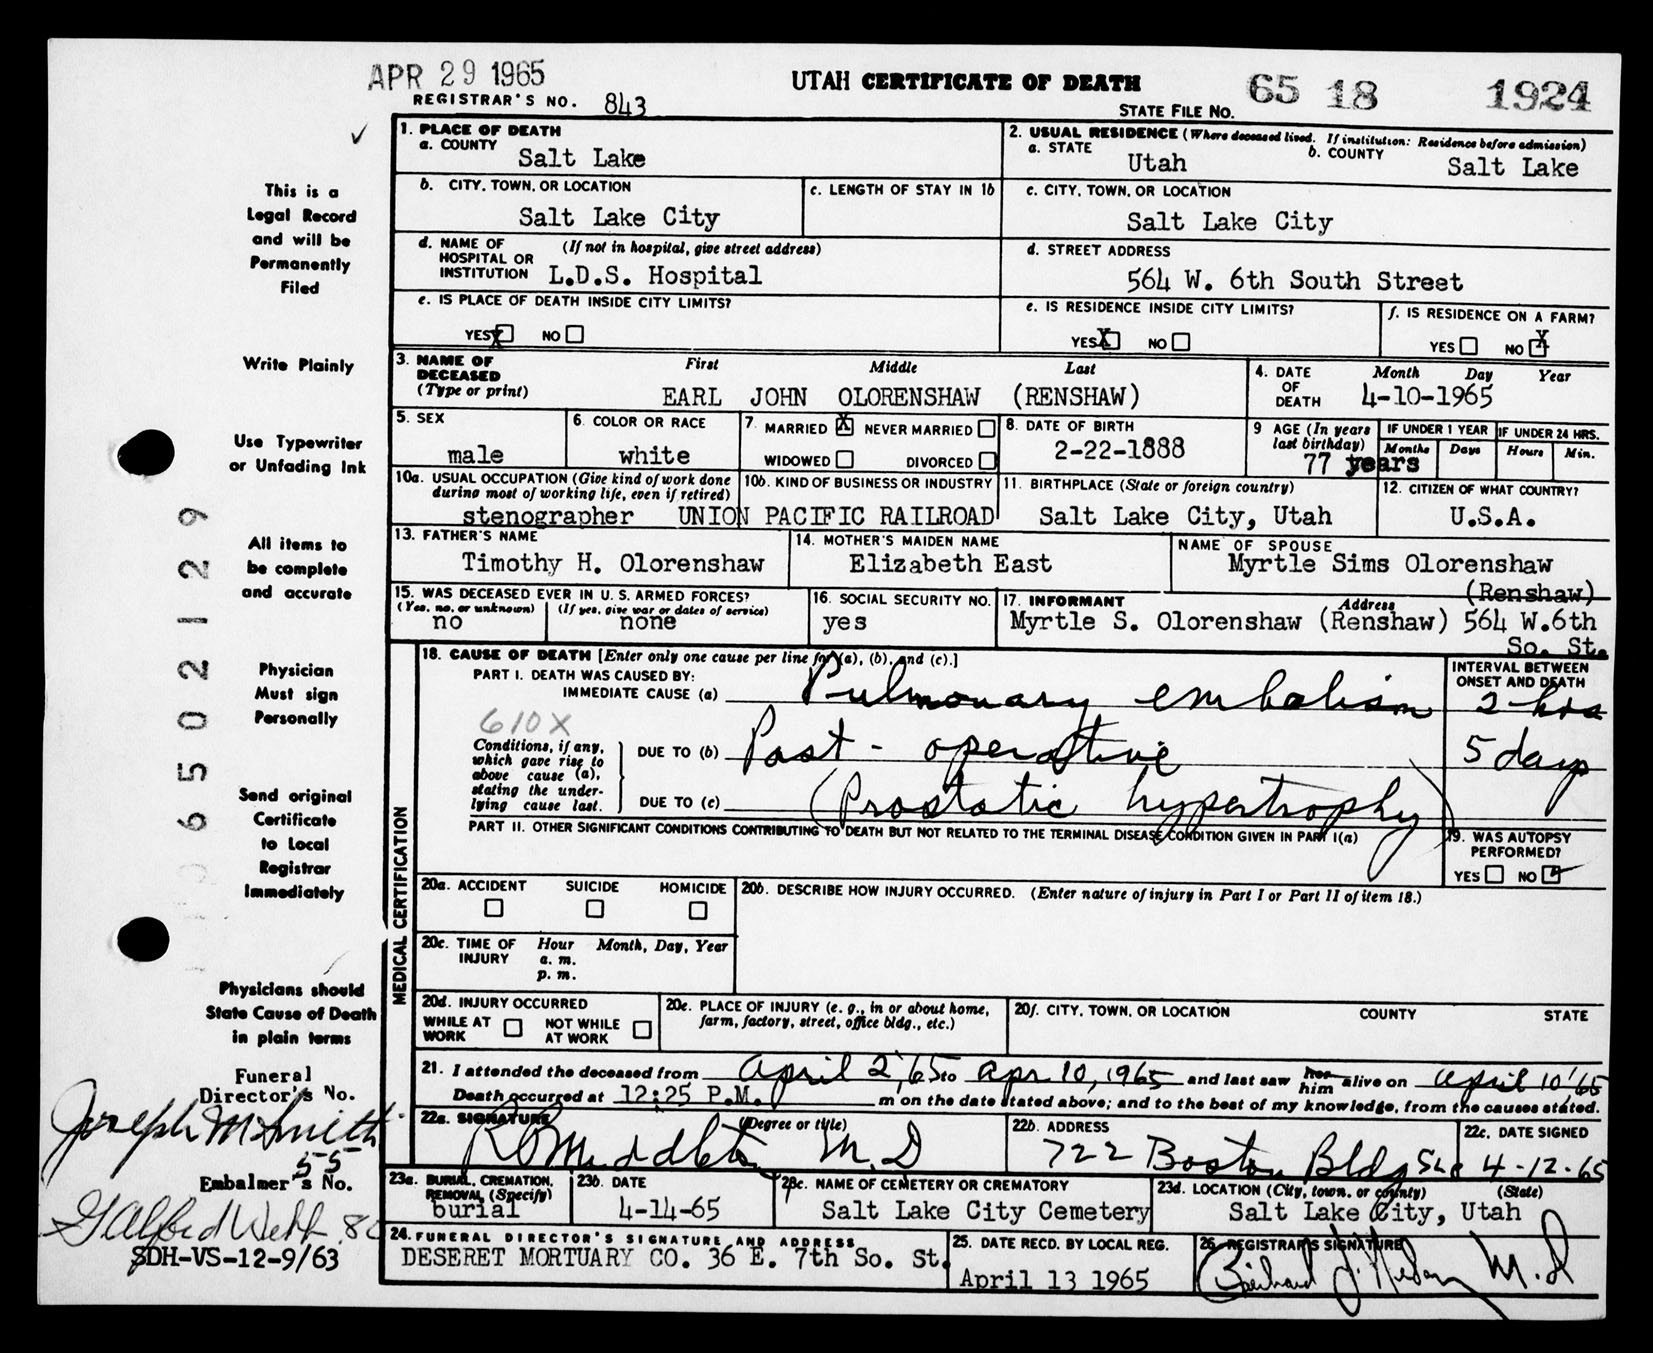 APR 29 1965
UTAH CERTIFICATE OF DEATH
65 18 1924
REGISTRAR'S NO. 843
STATE FILE NO.
1. PLACE OF DEATH
a. COUNTY
Salt Lake
2. USUAL RESIDENCE (Where deceased lived. If institution: Residence before admission)
a. STATE
Utah
b. COUNTY
Salt Lake
b. CITY, TOWN, OR LOCATION
Salt Lake City
c. LENGTH OF STAY IN 1b
c. CITY, TOWN, OR LOCATION
Salt Lake City
d. NAME OF (If not in hospital, give street address)
HOSPITAL OR
INSTITUTION L.D.S. Hospital
d. STREET ADDRESS
564 W. 6th South Street
e. IS PLACE OF DEATH INSIDE CITY LIMITS?
YES X NO
e. IS RESIDENCE INSIDE CITY LIMITS?
YES X NO
f. IS RESIDENCE ON A FARM?
YES NO X
3. NAME OF
DECEASED
(Type or print)
First Middle Last
EARL JOHN OLORENSHAW (RENSHAW)
4. DATE
OF
DEATH
Month Day Year
4-10-1965
5. SEX
male
6. COLOR OR RACE
white
7. MARRIED X NEVER MARRIED
WIDOWED DIVORCED
8. DATE OF BIRTH
2-22-1888
9 AGE (In years
last birthday)
77 years
IF UNDER 1 YEAR
Months Days
IF UNDER 24 HRS.
Hours Min.
10a. USUAL OCCUPATION (Give kind of work done
during most of working life, even if retired)
stenographer
10b. KIND OF BUSINESS OR INDUSTRY
UNION PACIFIC RAILROAD
11. BIRTHPLACE (State or foreign country)
Salt Lake City, Utah
12. CITIZEN OF WHAT COUNTRY?
U.S.A.
13. FATHER'S NAME
Timothy H. Olorenshaw
14. MOTHER'S MAIDEN NAME
Elizabeth East
NAME OF SPOUSE
Myrtle Sims Olorenshaw
(Renshaw)
15. WAS DECEASED EVER IN U. S. ARMED FORCES?
(Yes, no, or unknown) (If yes, give war or dates of service)
no none
16. SOCIAL SECURITY NO.
yes
17. INFORMANT Address
Myrtle S. Olorenshaw (Renshaw) 564 W.6th
So. St.
MEDICAL CERTIFICATION
18. CAUSE OF DEATH [Enter only one cause per line for (a), (b), and (c).]
PART I. DEATH WAS CAUSED BY:
IMMEDIATE CAUSE (a) Pulmonary embolism
INTERVAL BETWEEN
ONSET AND DEATH
2 hrs
610X
Conditions, if any,
which gave rise to
above cause (a),
stating the under-
lying cause last.
DUE TO (b) Post-operative
5 days
DUE TO (c) (Prostatic hypertrophy)
PART II. OTHER SIGNIFICANT CONDITIONS CONTRIBUTING TO DEATH BUT NOT RELATED TO THE TERMINAL DISEASE CONDITION GIVEN IN PART I(a)
19. WAS AUTOPSY
PERFORMED?
YES NO
20a. ACCIDENT SUICIDE HOMICIDE
20b. DESCRIBE HOW INJURY OCCURRED. (Enter nature of injury in Part I or Part II of item 18.)
20c. TIME OF Hour Month, Day, Year
INJURY a. m.
p. m.
20d. INJURY OCCURRED
WHILE AT NOT WHILE
WORK AT WORK
20e. PLACE OF INJURY (e. g., in or about home,
farm, factory, street, office bldg., etc.)
20f. CITY, TOWN, OR LOCATION COUNTY STATE
21. I attended the deceased from April 2, '65 to Apr 10, 1965 and last saw her him alive on April 10, '65
Death occurred at 12:25 P.M. m on the date stated above; and to the best of my knowledge, from the causes stated.
22a. SIGNATURE (Degree or title)
R O Middleton M.D
22b. ADDRESS
722 Boston Bldg SLC
22c. DATE SIGNED
4-12-65
23a. BURIAL, CREMATION,
REMOVAL (Specify)
burial
23b. DATE
4-14-65
23c. NAME OF CEMETERY OR CREMATORY
Salt Lake City Cemetery
23d. LOCATION (City, town, or county) (State)
Salt Lake City, Utah
24. FUNERAL DIRECTOR'S SIGNATURE AND ADDRESS
DESERET MORTUARY CO. 36 E. 7th So. St.
25. DATE RECD. BY LOCAL REG.
April 13 1965
26. REGISTRAR'S SIGNATURE
M.D
This is a
Legal Record
and will be
Permanently
Filed
Write Plainly
Use Typewriter
or Unfading Ink
All items to
be complete
and accurate
Physician
Must sign
Personally
Send original
Certificate
to Local
Registrar
Immediately
Physicians should
State Cause of Death
in plain terms
Funeral
Director's No.
Joseph M Smith
55
Embalmer's No.
G Alfred Webb
SDH-VS-12-9/63
6502129